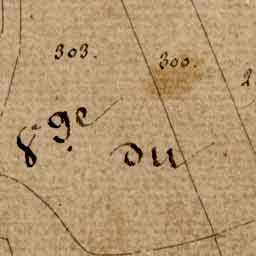 303. 300.
8.ge du